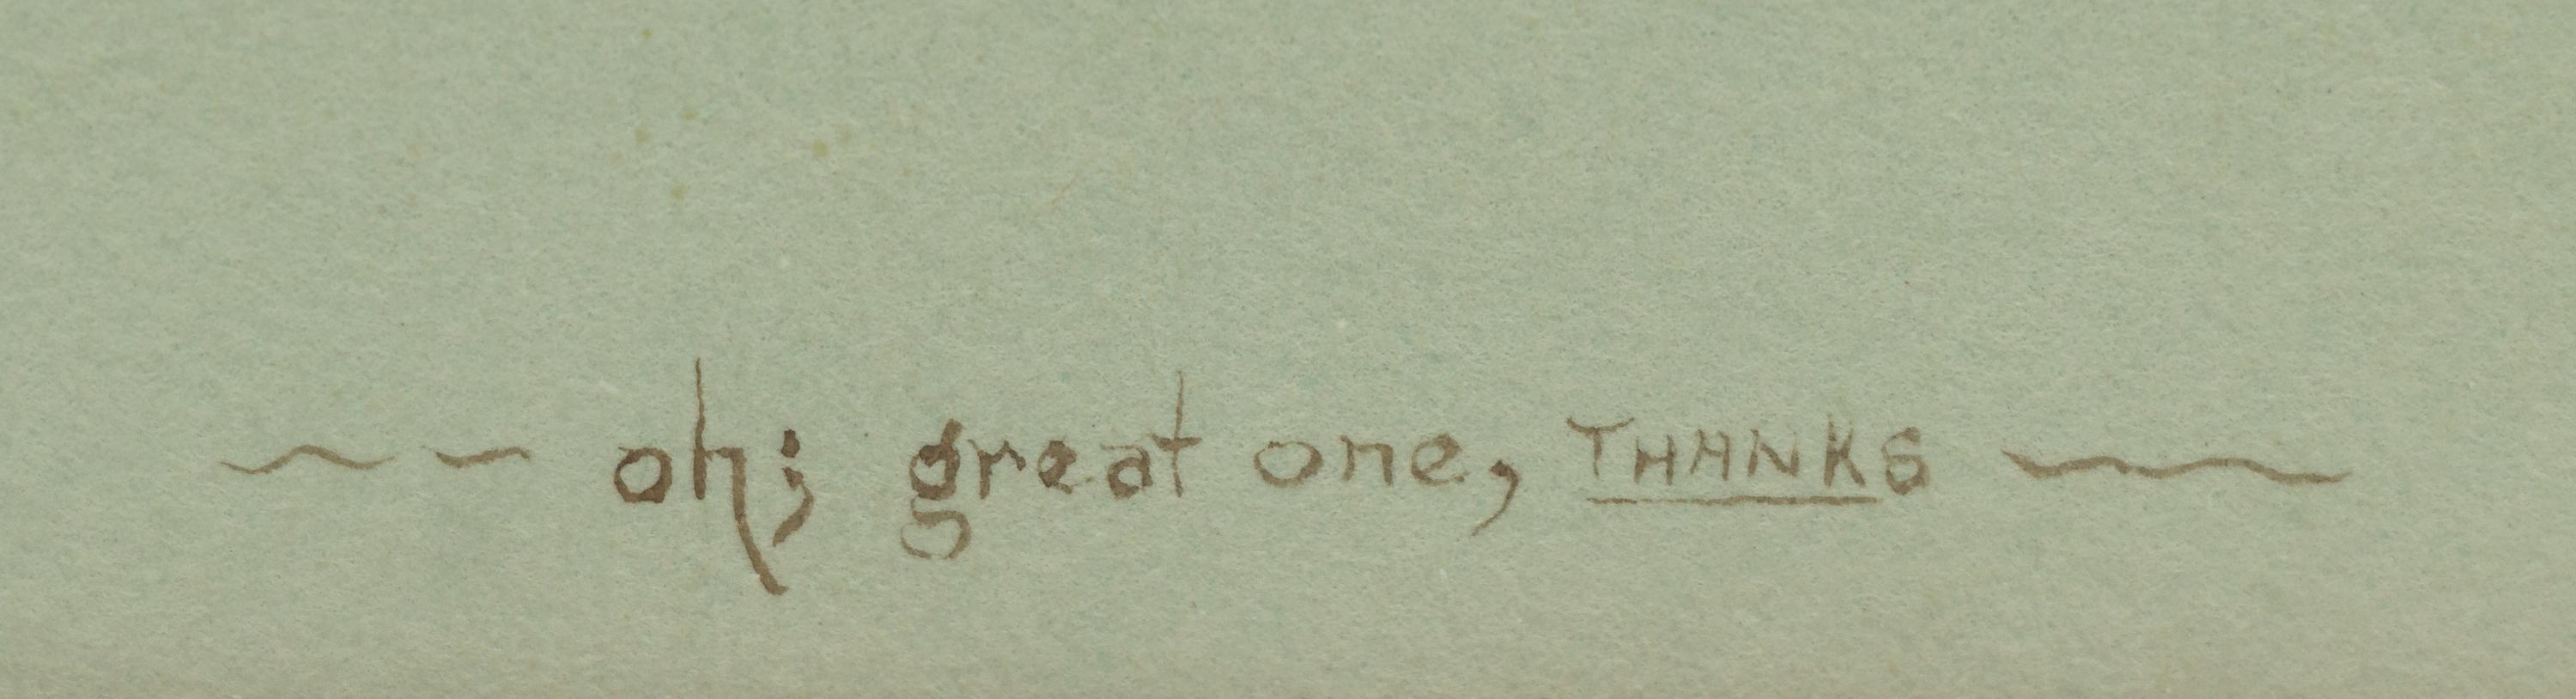 ~ – oh; great one, THANKS ~~